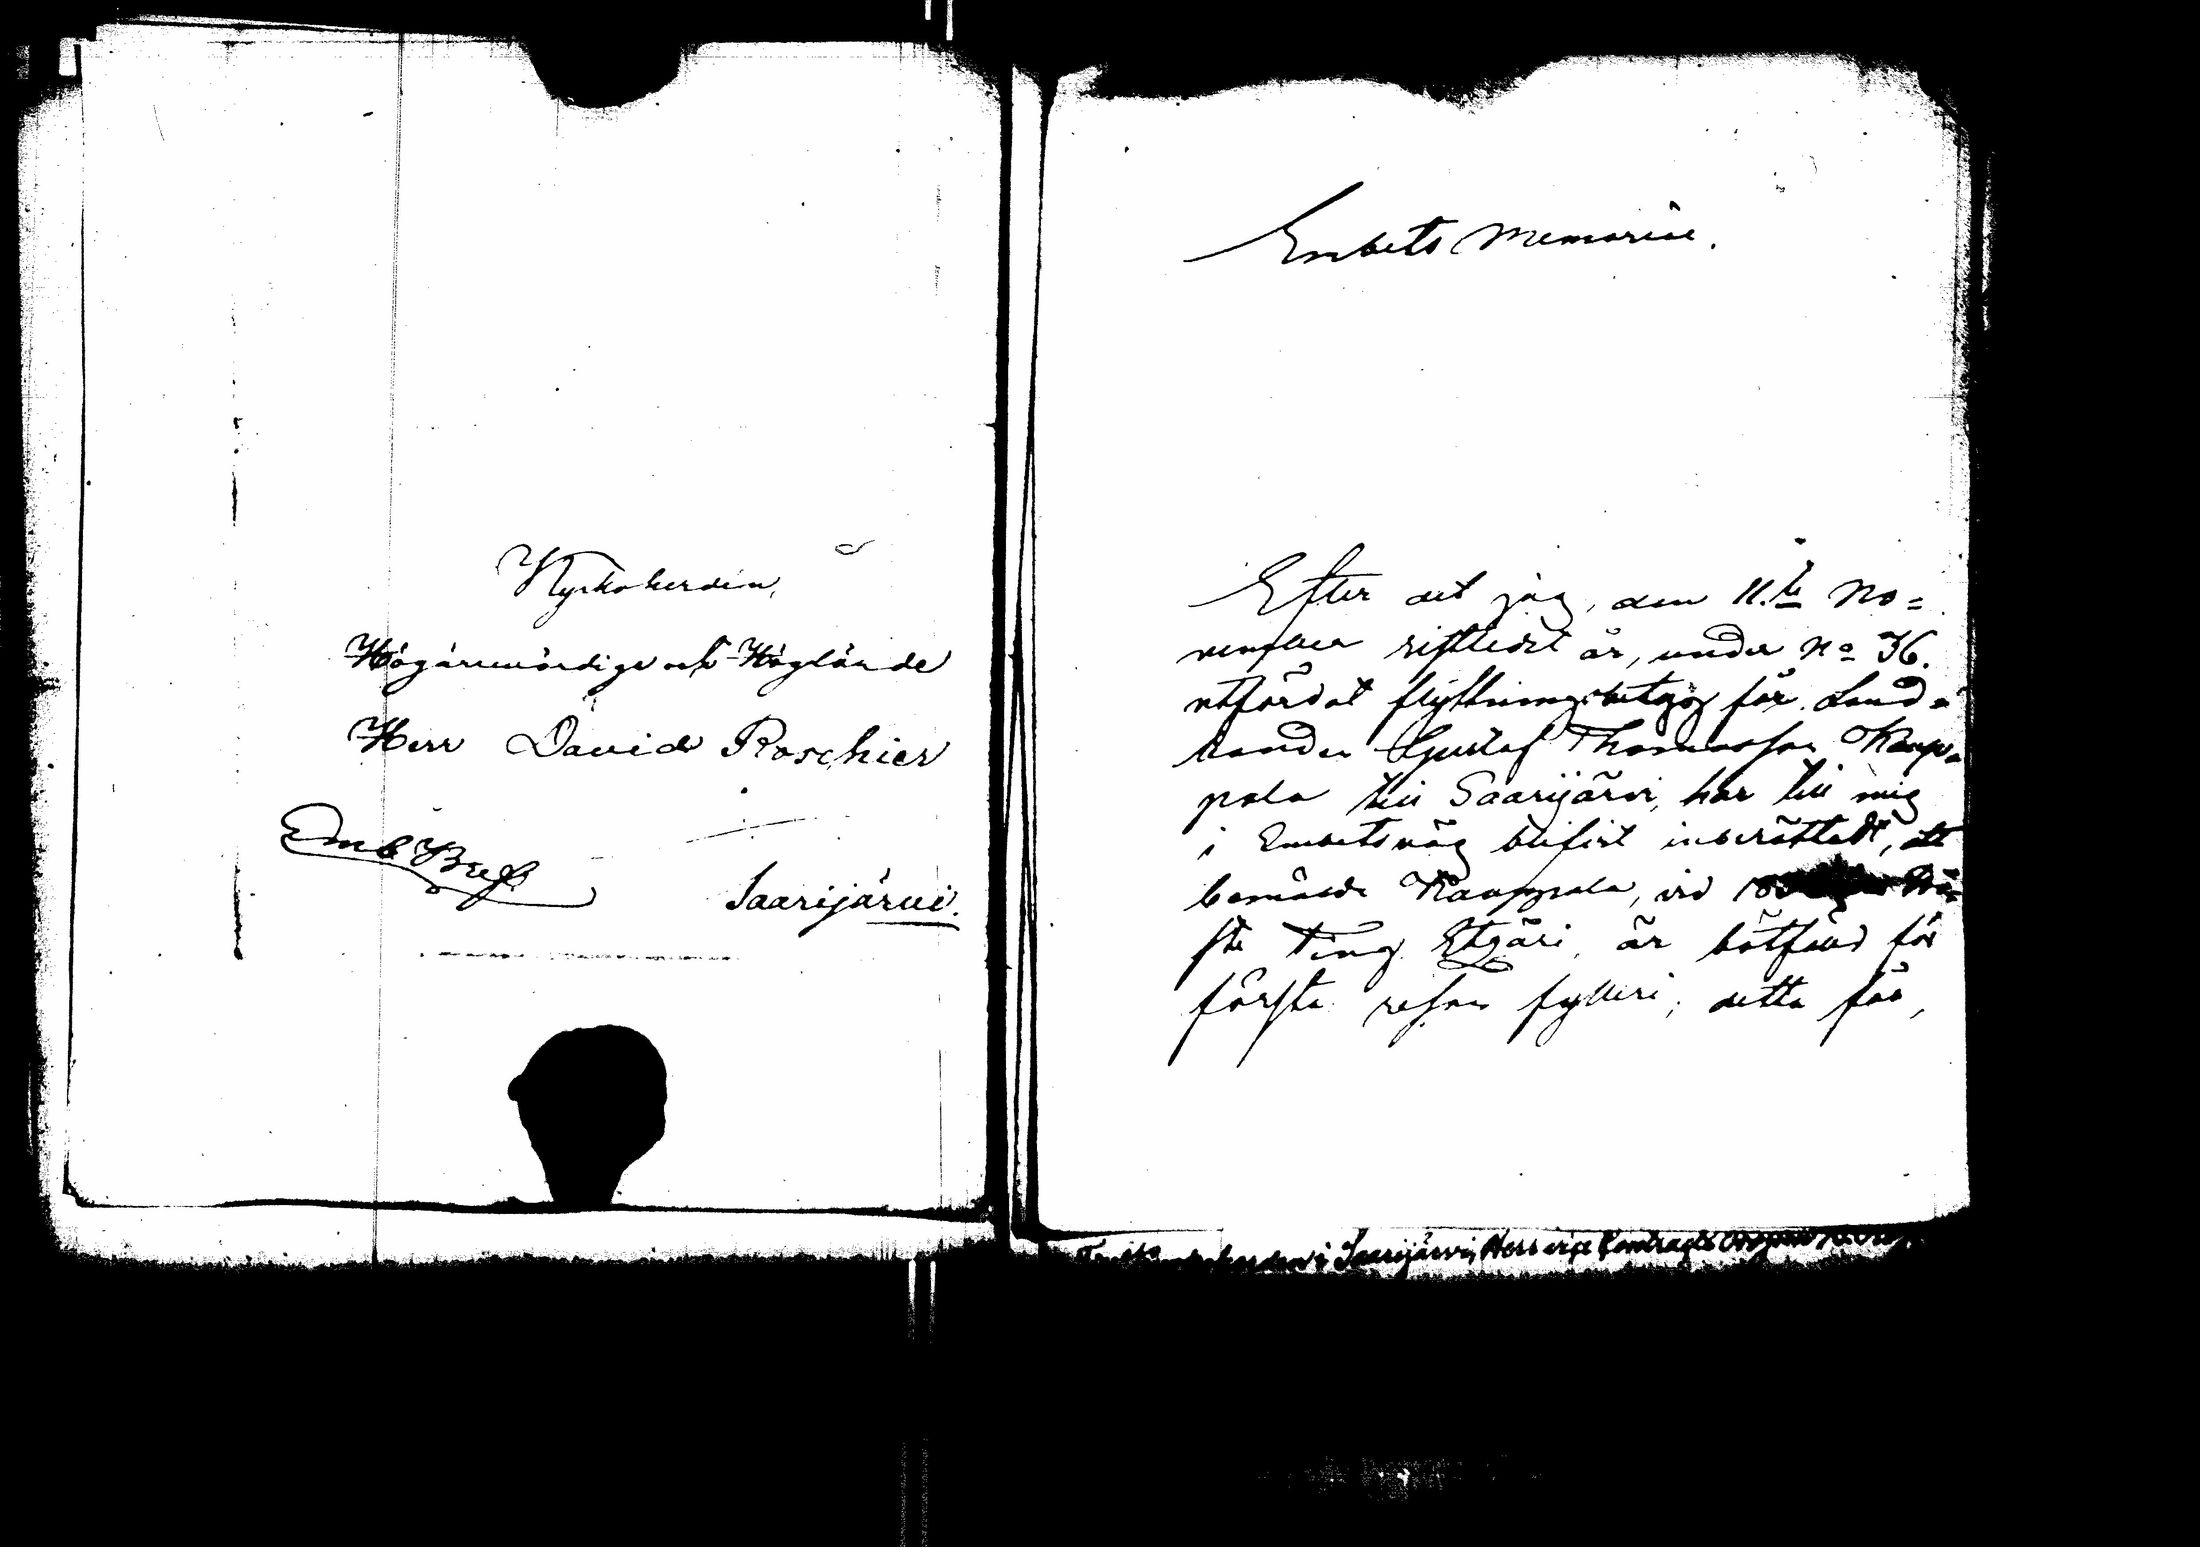 Kyrkoherden,
Högärevördige och Höglärde
Herr David Roschier
Emb Bref
Saarijärvi.
Embets Memorial.
Efter det jag, den 11.te No=
vember sistledit år, under No 36.
utfärdat flyttningsbetyg för Land=
bonden Gustaf Thomasson Kaup=
pala till Saarijärvi, har till mig
i Embetsväg blifvit inberättadt, att
bemälde Kauppala, vid
ste Ting Etzäri, är bötfäld för
första resan fylleri; detta får,
i Saarijärvi, Herr vice Contracts